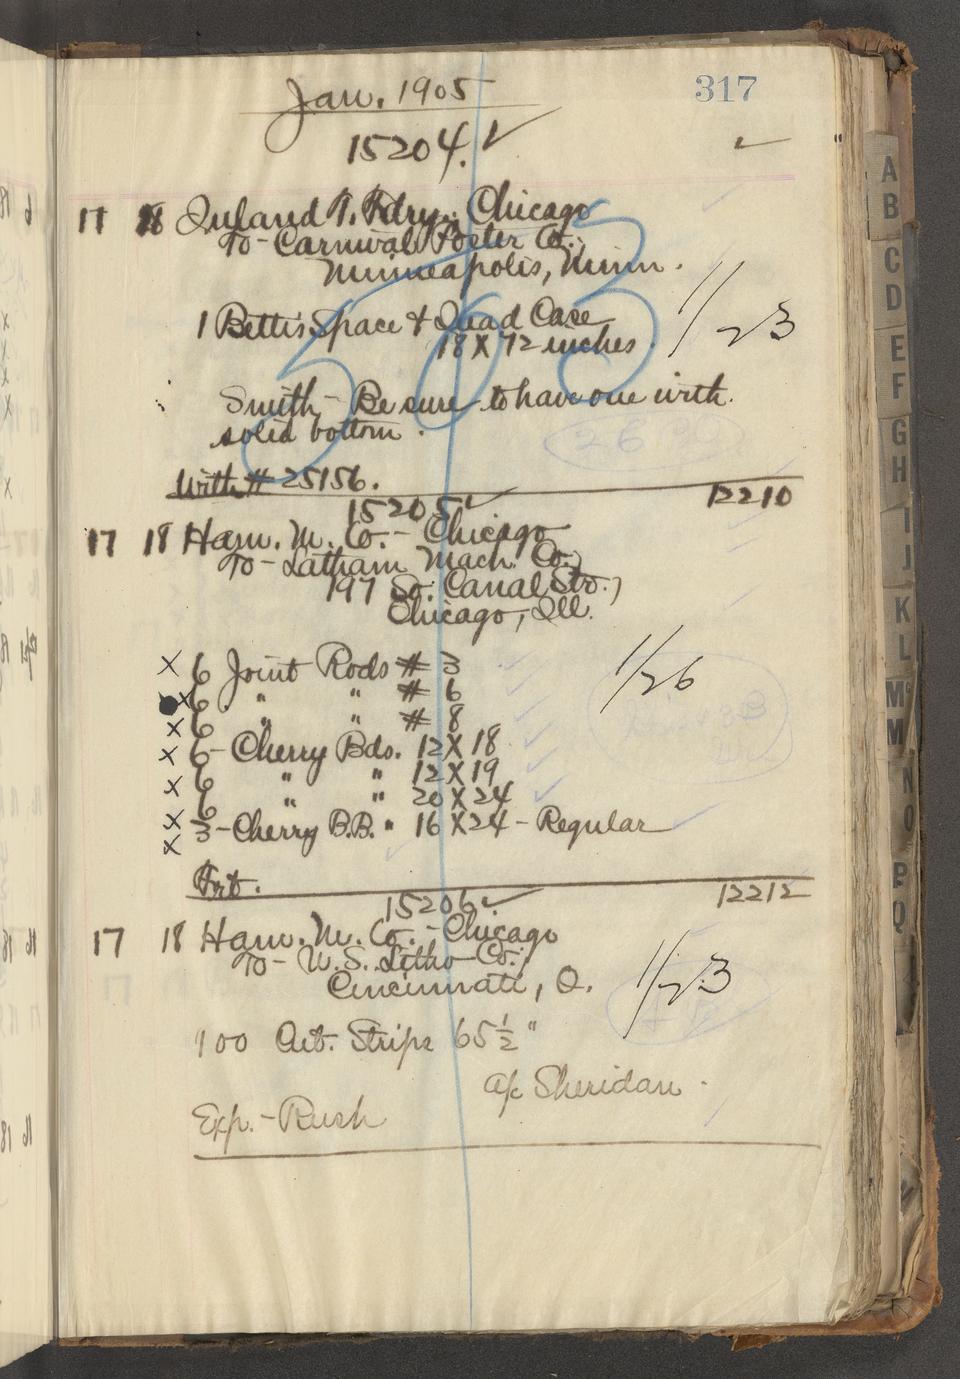 317
Jan. 1905
15204. ✓
17 18 Inland T. Fdry. Chicago
To - Carnival Poster Co.,
Minneapolis, Minn.
1 Bettis Space & Quad Case
18 X 72 inches.
1/23
563
Smith - Be sure to have one with
solid bottom.
26
With # 25156.
12210
15205 ✓
17 18 Ham. M. Co. - Chicago
To - Latham Mach. Co.,
197 So. Canal Str.,
Chicago, Ill.
1/26
X 6 Joint Rods # 3
X 6 " " # 6
X 6 " " # 8
X 6 - Cherry Bds. 12 X 18
X 6 " " 12 X 19
X 6 " " 20 X 24
X 3 - Cherry B.B. " 16 X 24 - Regular
Frt.
12212
15206 ✓
17 18 Ham. M. Co. - Chicago
To - U.S. Litho Co.,
Cincinnati, O.
1/23
100 Cut. Strips 65 1/2 "
a/c Sheridan.
Exp. - Rush
A
B
C
D
E
F
G
H
I
J
K
L
Mc
M
N
O
P
Q